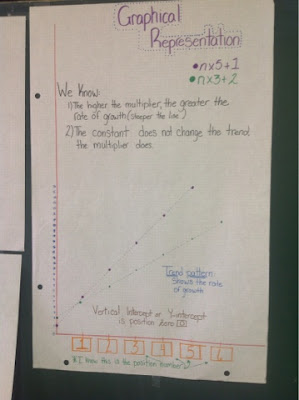 Graphical
Representation
•n×5+1
•n×3+2
We Know:
1) The higher the multiplier, the greater the
rate of growth (steeper the line)
2) The constant does not change the trend
the multiplier does.
Trend pattern
shows the rate
of growth
Vertical Intercept or Y-intercept
is position zero
1 2 3 4 5 6
I know this is the position number